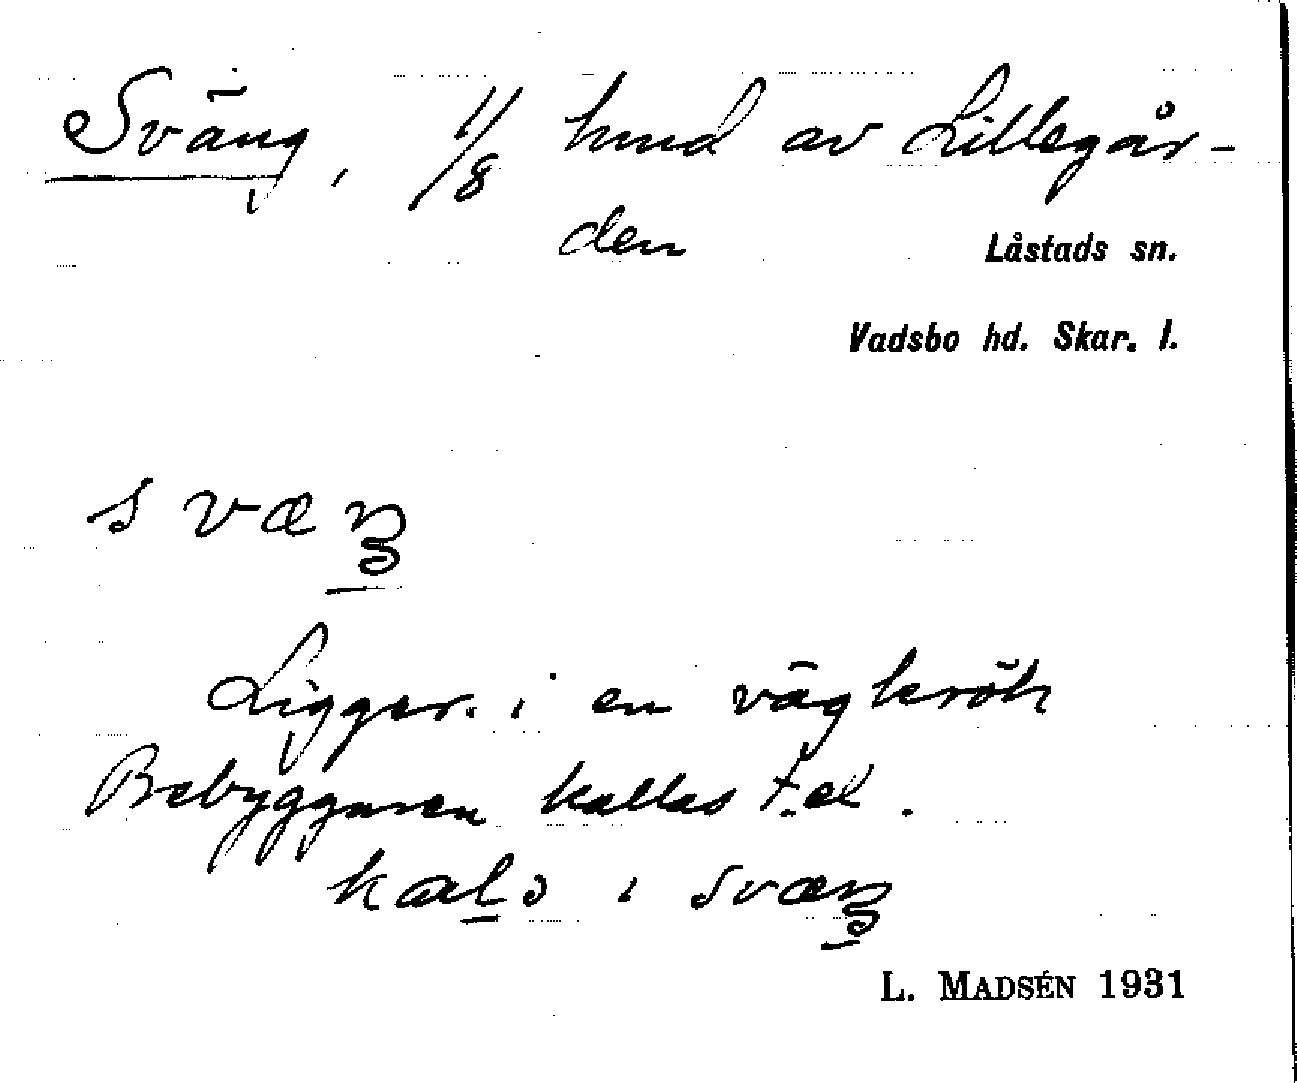 Sväng, 11/8 hmd av Lillegår-
den
Låstads sn.
Vadsbo hd. Skar. l.
svæŋ
Ligger i en vägkrök
Bebyggaren kallas t.ex.
i svæŋ
L. MADSÉN 1931